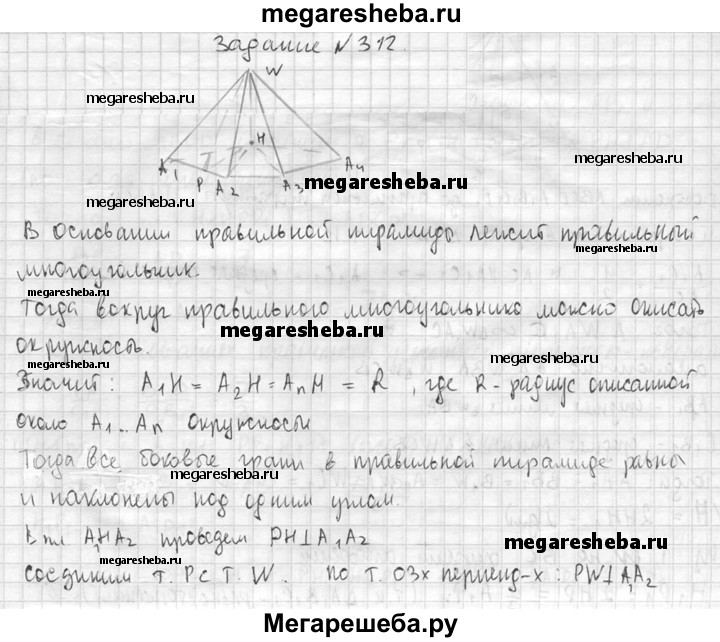 megaresheba.ru
Задание №312.
W
megaresheba.ru
H
megaresheba.ru
A1 P A2 A3 A4
megaresheba.ru
В основании правильной пирамиды лежит правильный
megaresheba.ru
многоугольник.
megaresheba.ru
Тогда вокруг правильного многоугольника можно описать
megaresheba.ru
окружность.
megaresheba.ru
megaresheba.ru
Значит: A1H = A2H = AnH = R, где R - радиус описанной
около A1...An окружности
megaresheba.ru
Тогда все боковые грани в правильной пирамиде равны
megaresheba.ru
и наклонены под одним углом.
В пл A1HA2 проведем PH⊥A1A2
megaresheba.ru
megaresheba.ru
Соединим т. P с т. W. По т. о 3х перпенд-х: PW⊥A1A2
Мегарешеба.ру